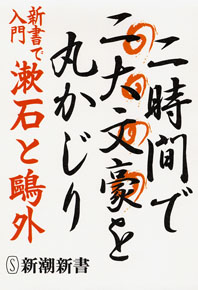 二時間で
二大文豪を
丸かじり
新書で
入門
漱石と鷗外
Ⓢ新潮新書